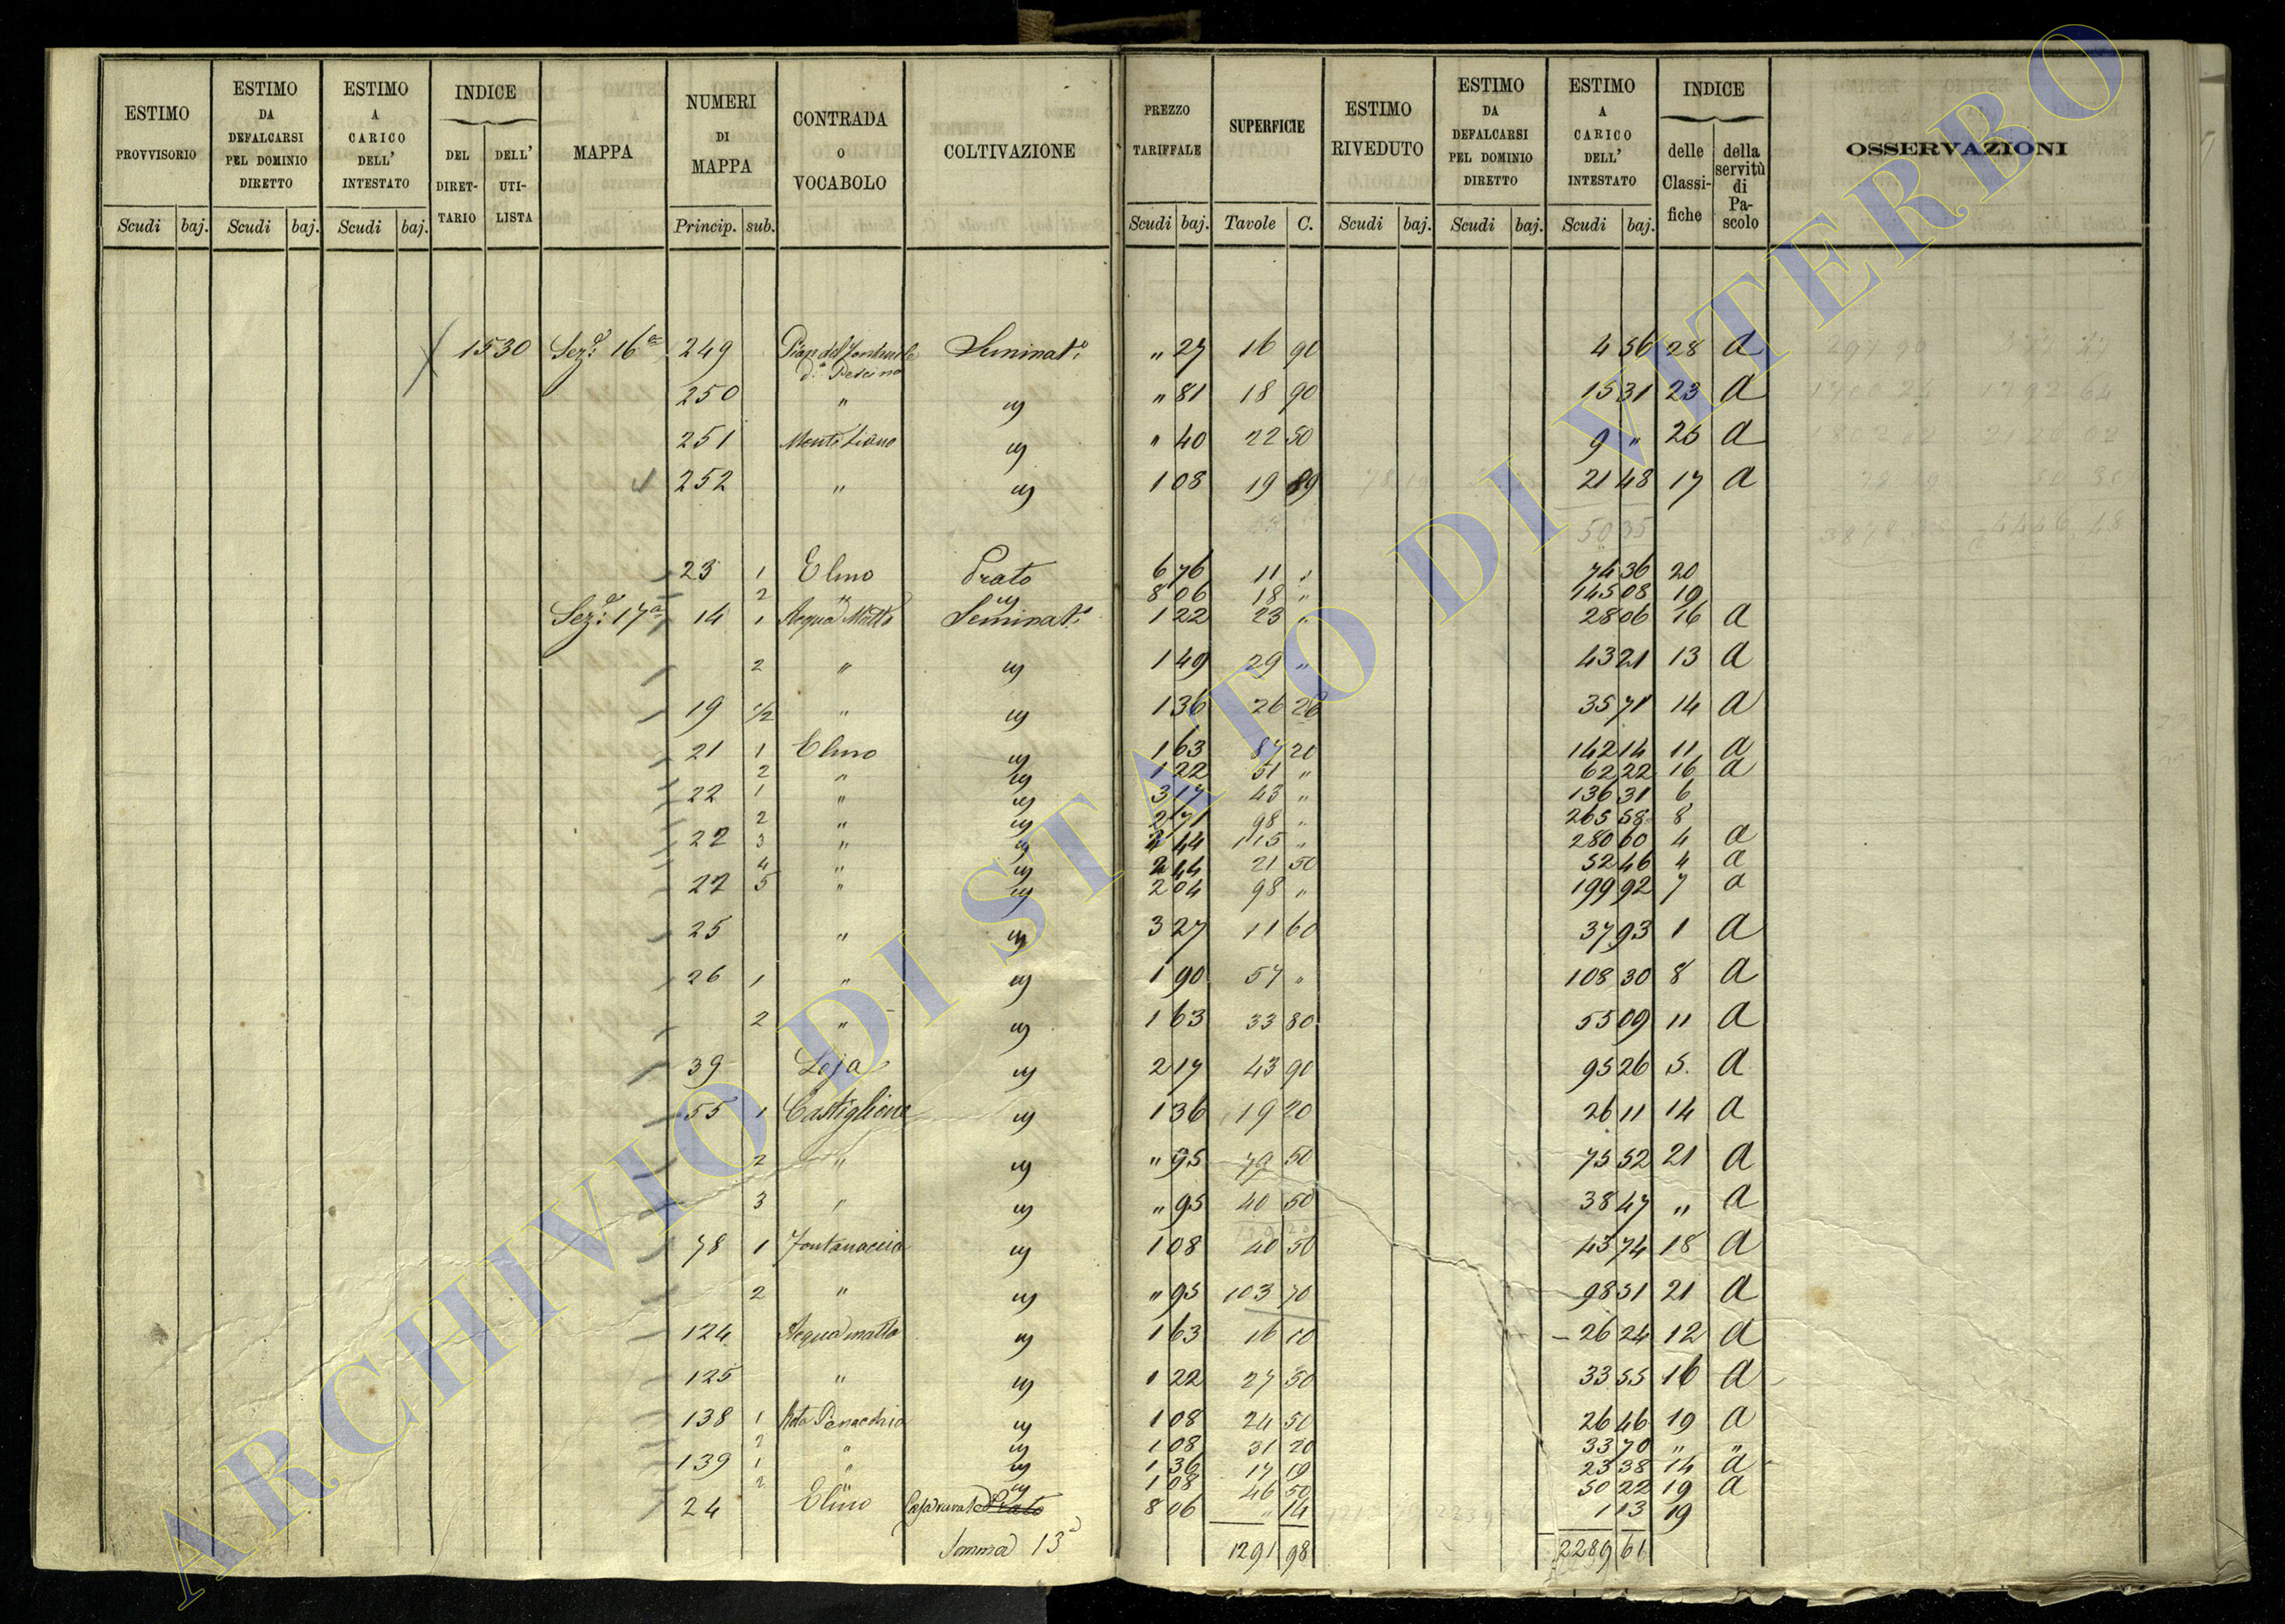 ESTIMO PROVVISORIO Scudi baj. ESTIMO DA DEFALCARSI PEL DOMINIO DIRETTO Scudi baj. ESTIMO A CARICO DELL' INTESTATO Scudi baj. INDICE DEL DIRET-TARIO DELL' UTI-LISTA MAPPA NUMERI DI MAPPA Princip. sub. CONTRADA O VOCABOLO COLTIVAZIONE PREZZO TARIFFALE Scudi baj. SUPERFICIE Tavole C. ESTIMO RIVEDUTO Scudi baj. ESTIMO DA DEFALCARSI PEL DOMINIO DIRETTO Scudi baj. ESTIMO A CARICO DELL' INTESTATO Scudi baj. INDICE delle Classi-fiche della servitù di Pa-scolo OSSERVAZIONI
1530 Sez: 16a 249 Seminat: " 27 16 90 4 56 28 a
250 " " 81 18 90 15 31 23 a
251 " 40 22 50 9 " 25 a
252 " 1 08 19 89 21 48 17 a
50 35
23 1 Elmo Prato 6 76 11 " 74 36 20
2 " 8 06 18 " 145 08 19
Sez: 17a 14 1 Acqua Matta Seminat: 1 22 23 " 28 06 16 a
2 " 1 49 29 " 43 21 13 a
19 1/2 " 1 36 26 26 35 71 14 a
21 1 Elmo 1 63 87 20 142 14 11 a
2 " 1 22 51 " 62 22 16 a
22 1 " 3 17 43 " 136 31 6
2 " 2 71 98 " 265 58 8
22 3 " 2 44 115 " 280 60 4 a
4 " 2 44 21 50 52 46 4 a
22 5 " 2 04 98 " 199 92 7 a
25 " 3 27 11 60 37 93 1 a
26 1 " 1 90 57 " 108 30 8 a
2 " 1 63 33 80 55 09 11 a
39 Loja 2 17 43 90 95 26 5. a
55 1 Castiglione 1 36 19 20 26 11 14 a
2 " " 95 79 50 75 52 21 a
3 " " 95 40 50 38 47 " a
78 1 Fontanaccia 1 08 40 50 43 74 18 a
2 " " 95 103 70 98 51 21 a
124 Acqua matta 1 63 16 10 26 24 12 a
125 " 1 22 27 50 33 55 16 a
138 1 1 08 24 50 26 46 19 a
2 " 1 08 31 20 33 70 " "
139 1 " 1 36 17 19 23 38 14 a
2 " 1 08 46 50 50 22 19 a
24 Elmo Prato 8 06 " 14 1 13 19
Somma 13a 1291 98 2289 61
ARCHIVIO DI STATO DI VITERBO